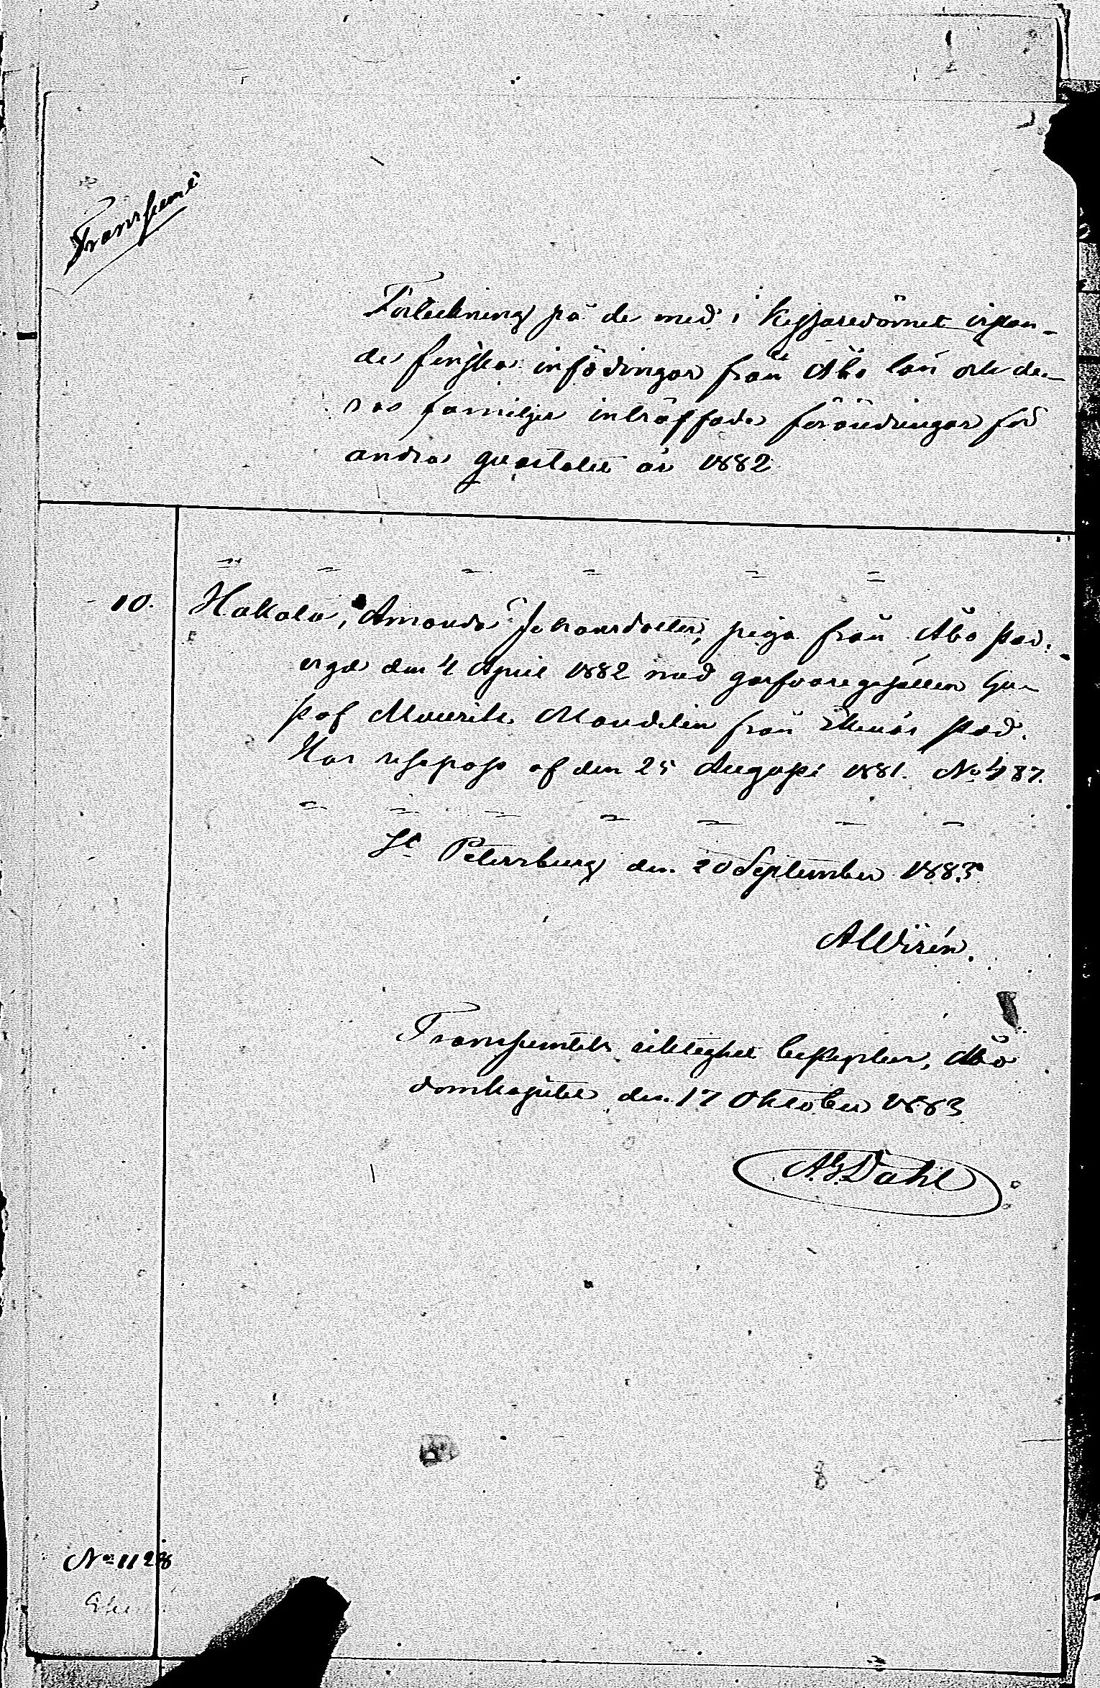 Transsumt
Förteckning på de med i Kejsaredömet vistan-
de finska infödingar från Åbo län och de-
ras familjer inträffade förändringar för
andra quartalet år 1882
10. Hakala, Amanda Johansdotter, piga från Åbo stad.
den 4 April 1882 med garfvaregesällen Gu-
staf Maurits Mandelin från Ekenäs stad.
Har respass af den 25 Augusti 1881. No 487.
St Petersburg den 20 September 1883.
A Wirén.
Transumtets riktighet bestyrker, Åbo
domkapitel den 17 Oktober 1883
A.G. Dahl
No 1128